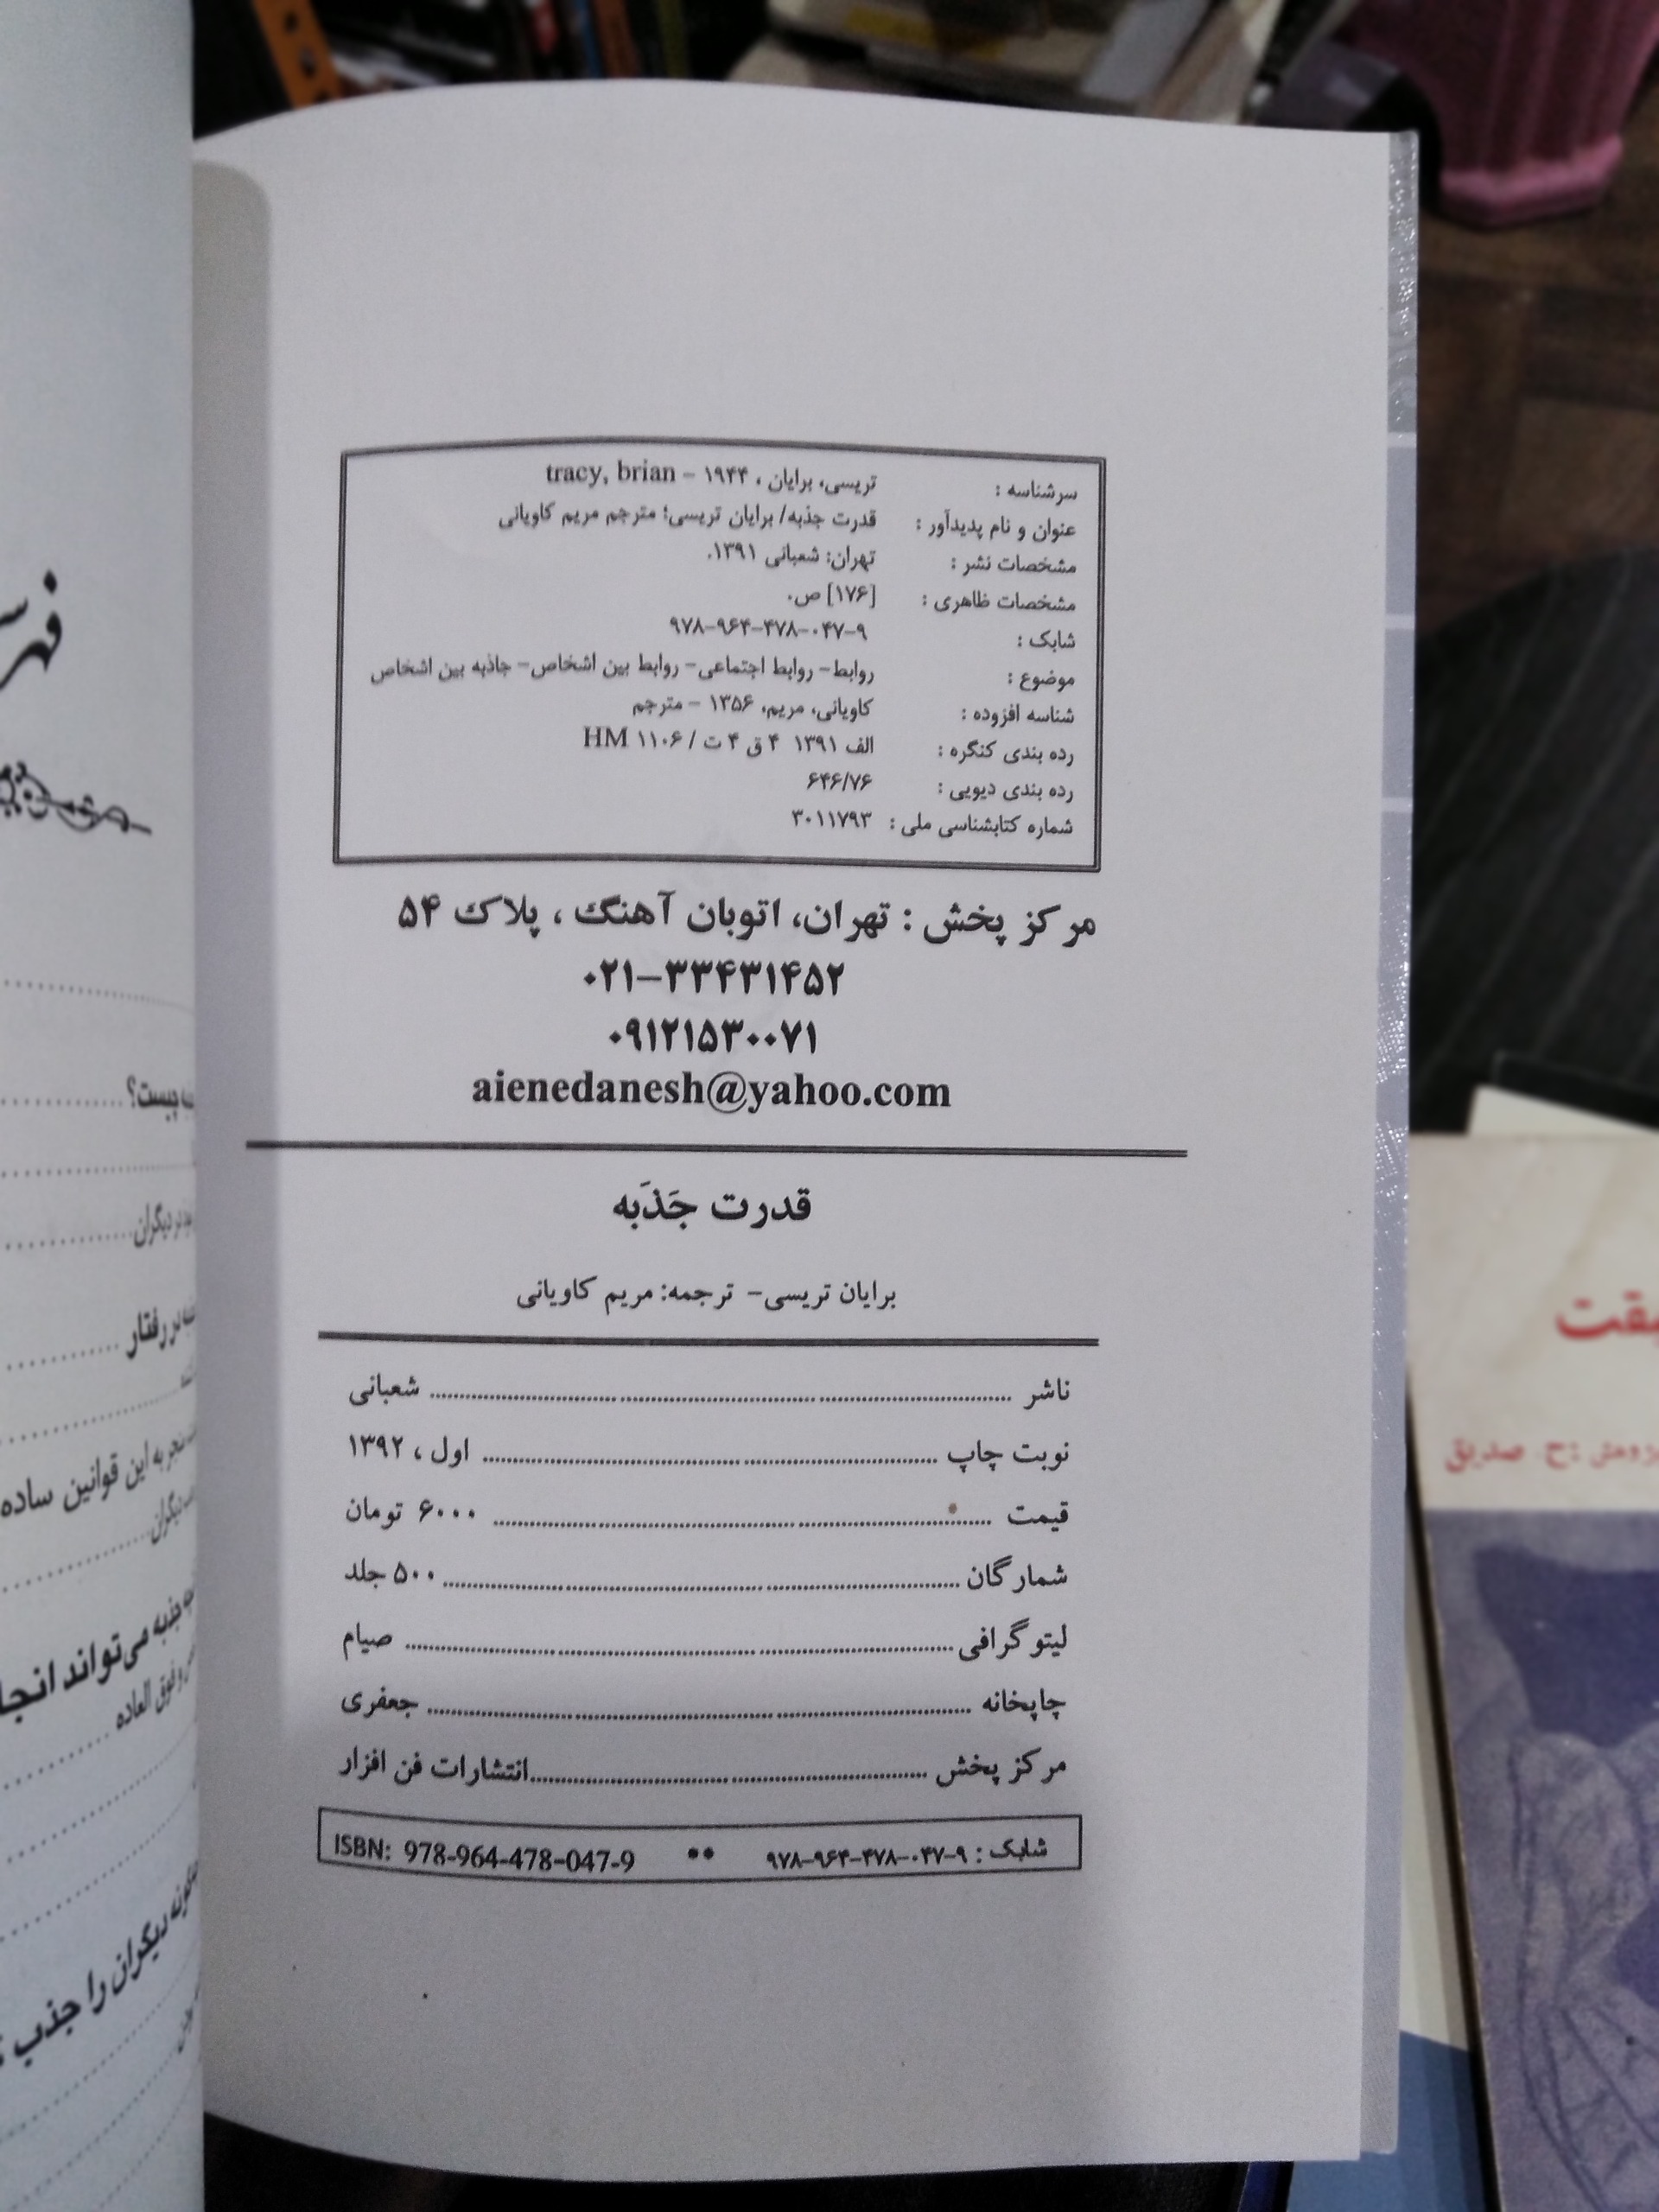 سرشناسه : تریسی، برایان ، ۱۹۴۴ – tracy, brian
عنوان و نام پدیدآور : قدرت جذبه/ برایان تریسی؛ مترجم مریم کاویانی
مشخصات نشر : تهران: شعبانی ۱۳۹۱.
مشخصات ظاهری : [۱۷۶] ص.
شابک : ۹۷۸–۹۶۴–۴۷۸–۰۴۷–۹
موضوع : روابط– روابط اجتماعی– روابط بین اشخاص– جاذبه بین اشخاص
شناسه افزوده : کاویانی، مریم، ۱۳۵۶ – مترجم
رده بندی کنگره : الف ۱۳۹۱ ۴ ق ۴ ت / HM ۱۱۰۶
رده بندی دیویی : ۶۴۶/۷۶
شماره کتابشناسی ملی : ۳۰۱۱۷۹۳
مرکز پخش : تهران، اتوبان آهنگ ، پلاک ۵۴
۰۲۱–۳۳۴۳۱۴۵۲
۰۹۱۲۱۵۳۰۰۷۱
aienedanesh@yahoo.com
قدرت جَذَبه
برایان تریسی– ترجمه: مریم کاویانی
ناشر ........ شعبانی
نوبت چاپ ........ اول ، ۱۳۹۲
قیمت ........ ۶۰۰۰ تومان
شمارگان ........ ۵۰۰ جلد
لیتوگرافی ........ صیام
چاپخانه ........ جعفری
مرکز پخش ........ انتشارات فن افزار
شابک : ۹۷۸–۹۶۴–۴۷۸–۰۴۷–۹ •• ISBN: 978-964-478-047-9
چیست؟
دیگران
در رفتار
تجربه این قوانین ساده
دیگران
جذبه می‌تواند
و فوق العاده
چگونه دیگران را جذب
صدیق